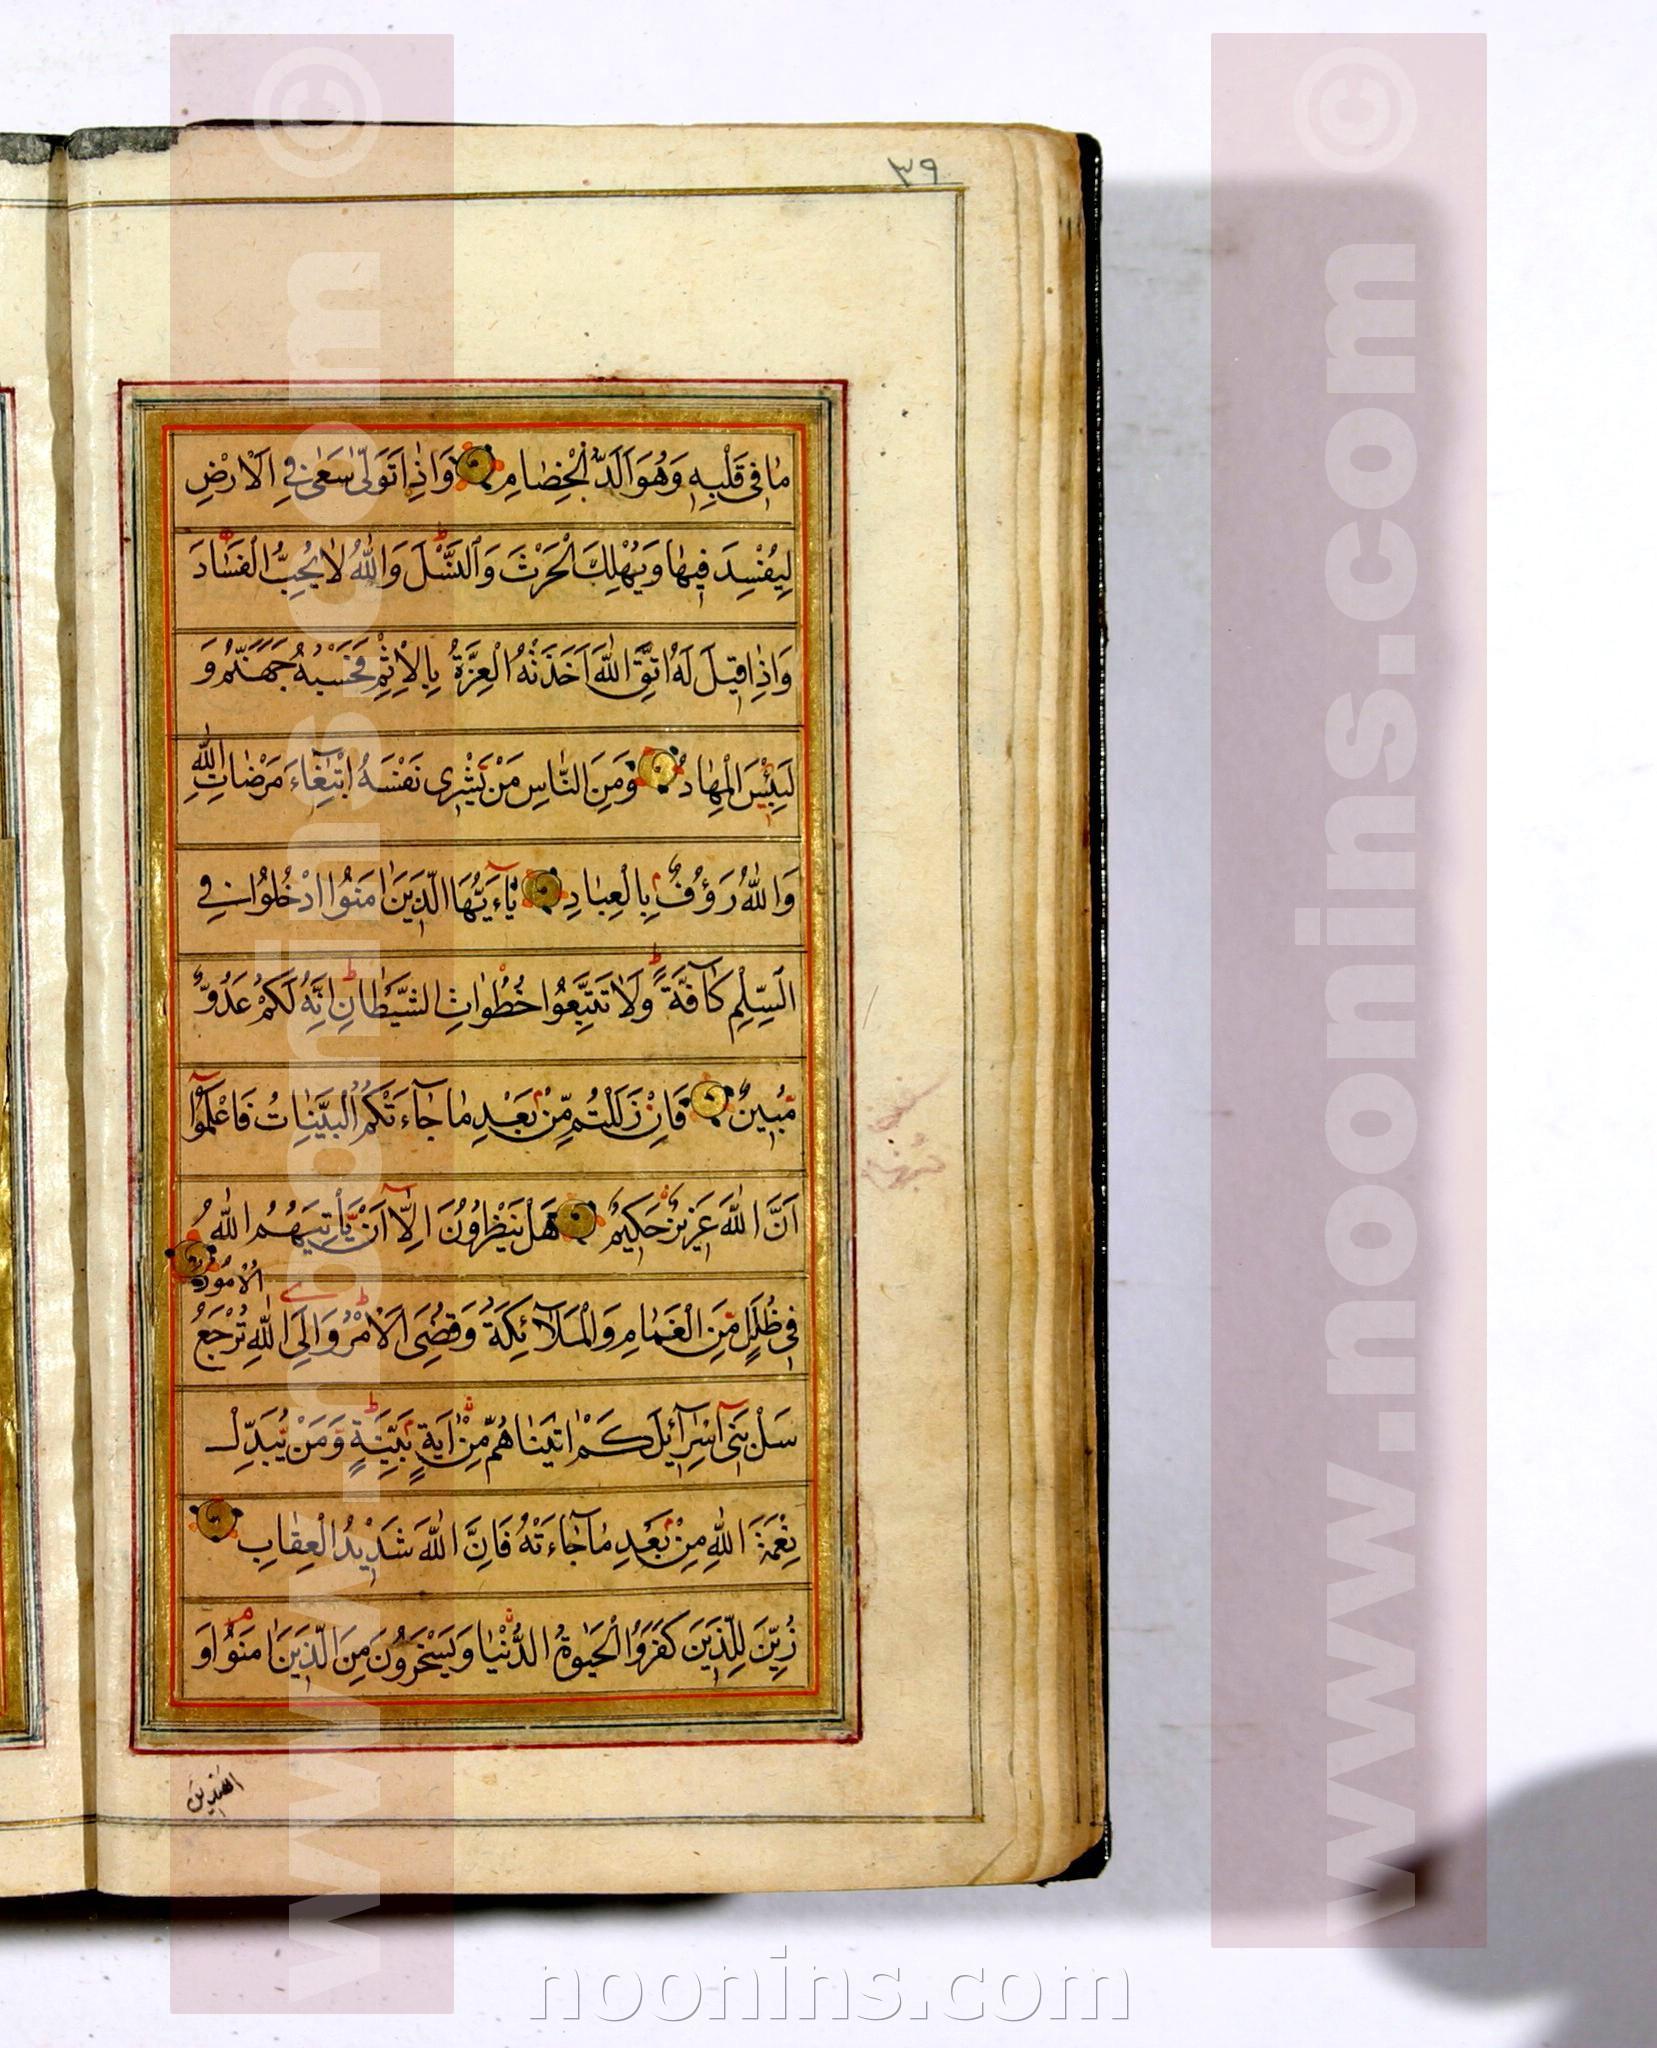 ٣٩
مٰا فِي قَلْبِهٖ وَهُوَ اَلَدُّ الْخِصٰامِ وَاِذٰا تَوَلّىٰ سَعىٰ فِي الْاَرْضِ
لِيُفْسِدَ فِيهٰا وَيُهْلِكَ الْحَرْثَ وَالنَّسْلَ وَاللّٰهُ لٰا يُحِبُّ الْفَسٰادَ
وَاِذٰا قِيلَ لَهُ اتَّقِ اللّٰهَ اَخَذَتْهُ الْعِزَّةُ بِالْاِثْمِ فَحَسْبُهُ جَهَنَّمُ وَ
لَبِئْسَ الْمِهٰادُ وَمِنَ النّٰاسِ مَنْ يَشْرِي نَفْسَهُ ابْتِغٰآءَ مَرْضٰاتِ اللّٰهِ
وَاللّٰهُ رَؤُفٌ بِالْعِبٰادِ يٰآءَيُّهَا الَّذِينَ اٰمَنُوا ادْخُلُوا فِي
السِّلْمِ كٰآفَّةً وَلٰا تَتَّبِعُوا خُطُوٰاتِ الشَّيْطٰانِ اِنَّهُ لَكُمْ عَدُوٌّ
مُبِينٌ فَاِنْ زَلَلْتُمْ مِنْ بَعْدِ مٰا جٰآءَتْكُمُ الْبَيِّنٰاتُ فَاعْلَمُوٓا
اَنَّ اللّٰهَ عَزِيزٌ حَكِيمٌ هَلْ يَنْظُرُونَ اِلّٰآ اَنْ يَأْتِيَهُمُ اللّٰهُ
الْاُمُورُ
فِي ظُلَلٍ مِنَ الْغَمٰامِ وَالْمَلٰآئِكَةُ وَقُضِيَ الْاَمْرُ وَاِلَى اللّٰهِ تُرْجَعُ
سَلْ بَنِيٓ اِسْرٰآئِلَ كَمْ اٰتَيْنٰاهُمْ مِنْ اٰيَةٍ بَيِّنَةٍ وَمَنْ يُبَدِّلْ
نِعْمَةَ اللّٰهِ مِنْ بَعْدِ مٰا جٰآءَتْهُ فَاِنَّ اللّٰهَ شَدِيدُ الْعِقٰابِ
زُيِّنَ لِلَّذِينَ كَفَرُوا الْحَيٰوةُ الدُّنْيٰا وَيَسْخَرُونَ مِنَ الَّذِينَ اٰمَنُوا وَ
www.noonins.com ©
www.noonins.com ©
noonins.com